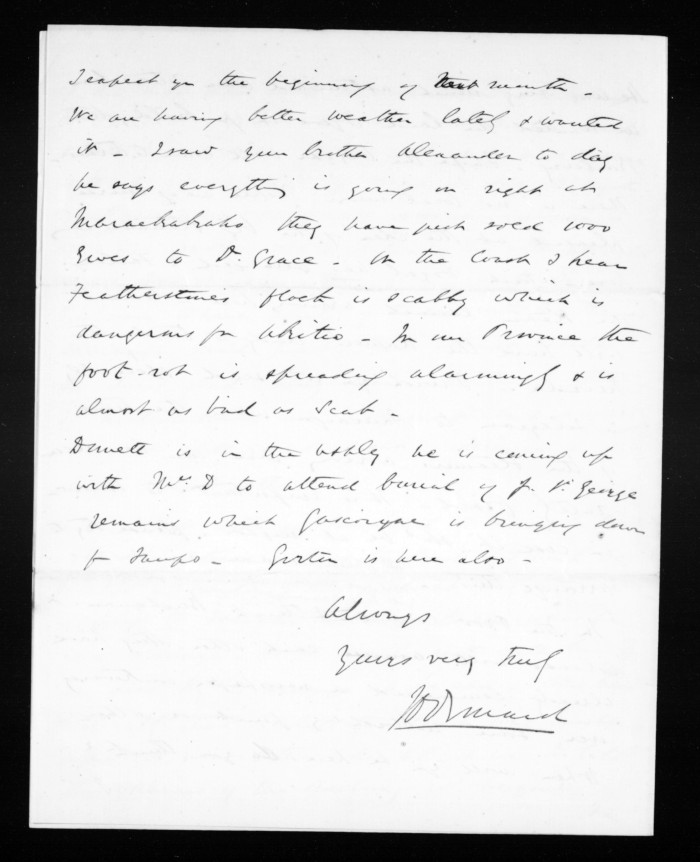 I expect you the beginning of next month -
We are having better weather lately & wanted
it - I saw your brother Alexander to day
he says everything is going on right at
Maraekakaho they have just sold 1000
Ewes to Dr. Grace - On the Coast I hear
Featherstones flock is scabby which is
dangerous for Akitio - In our Province the
foot-rot is spreading alarmingly & is
almost as bad as Scab -
is in the he is coming up
with Mrs. D to attend burial of J. St. George
remains which Gascoyne is bringing down
f Taupo - is here also -
Always
Yours very truly